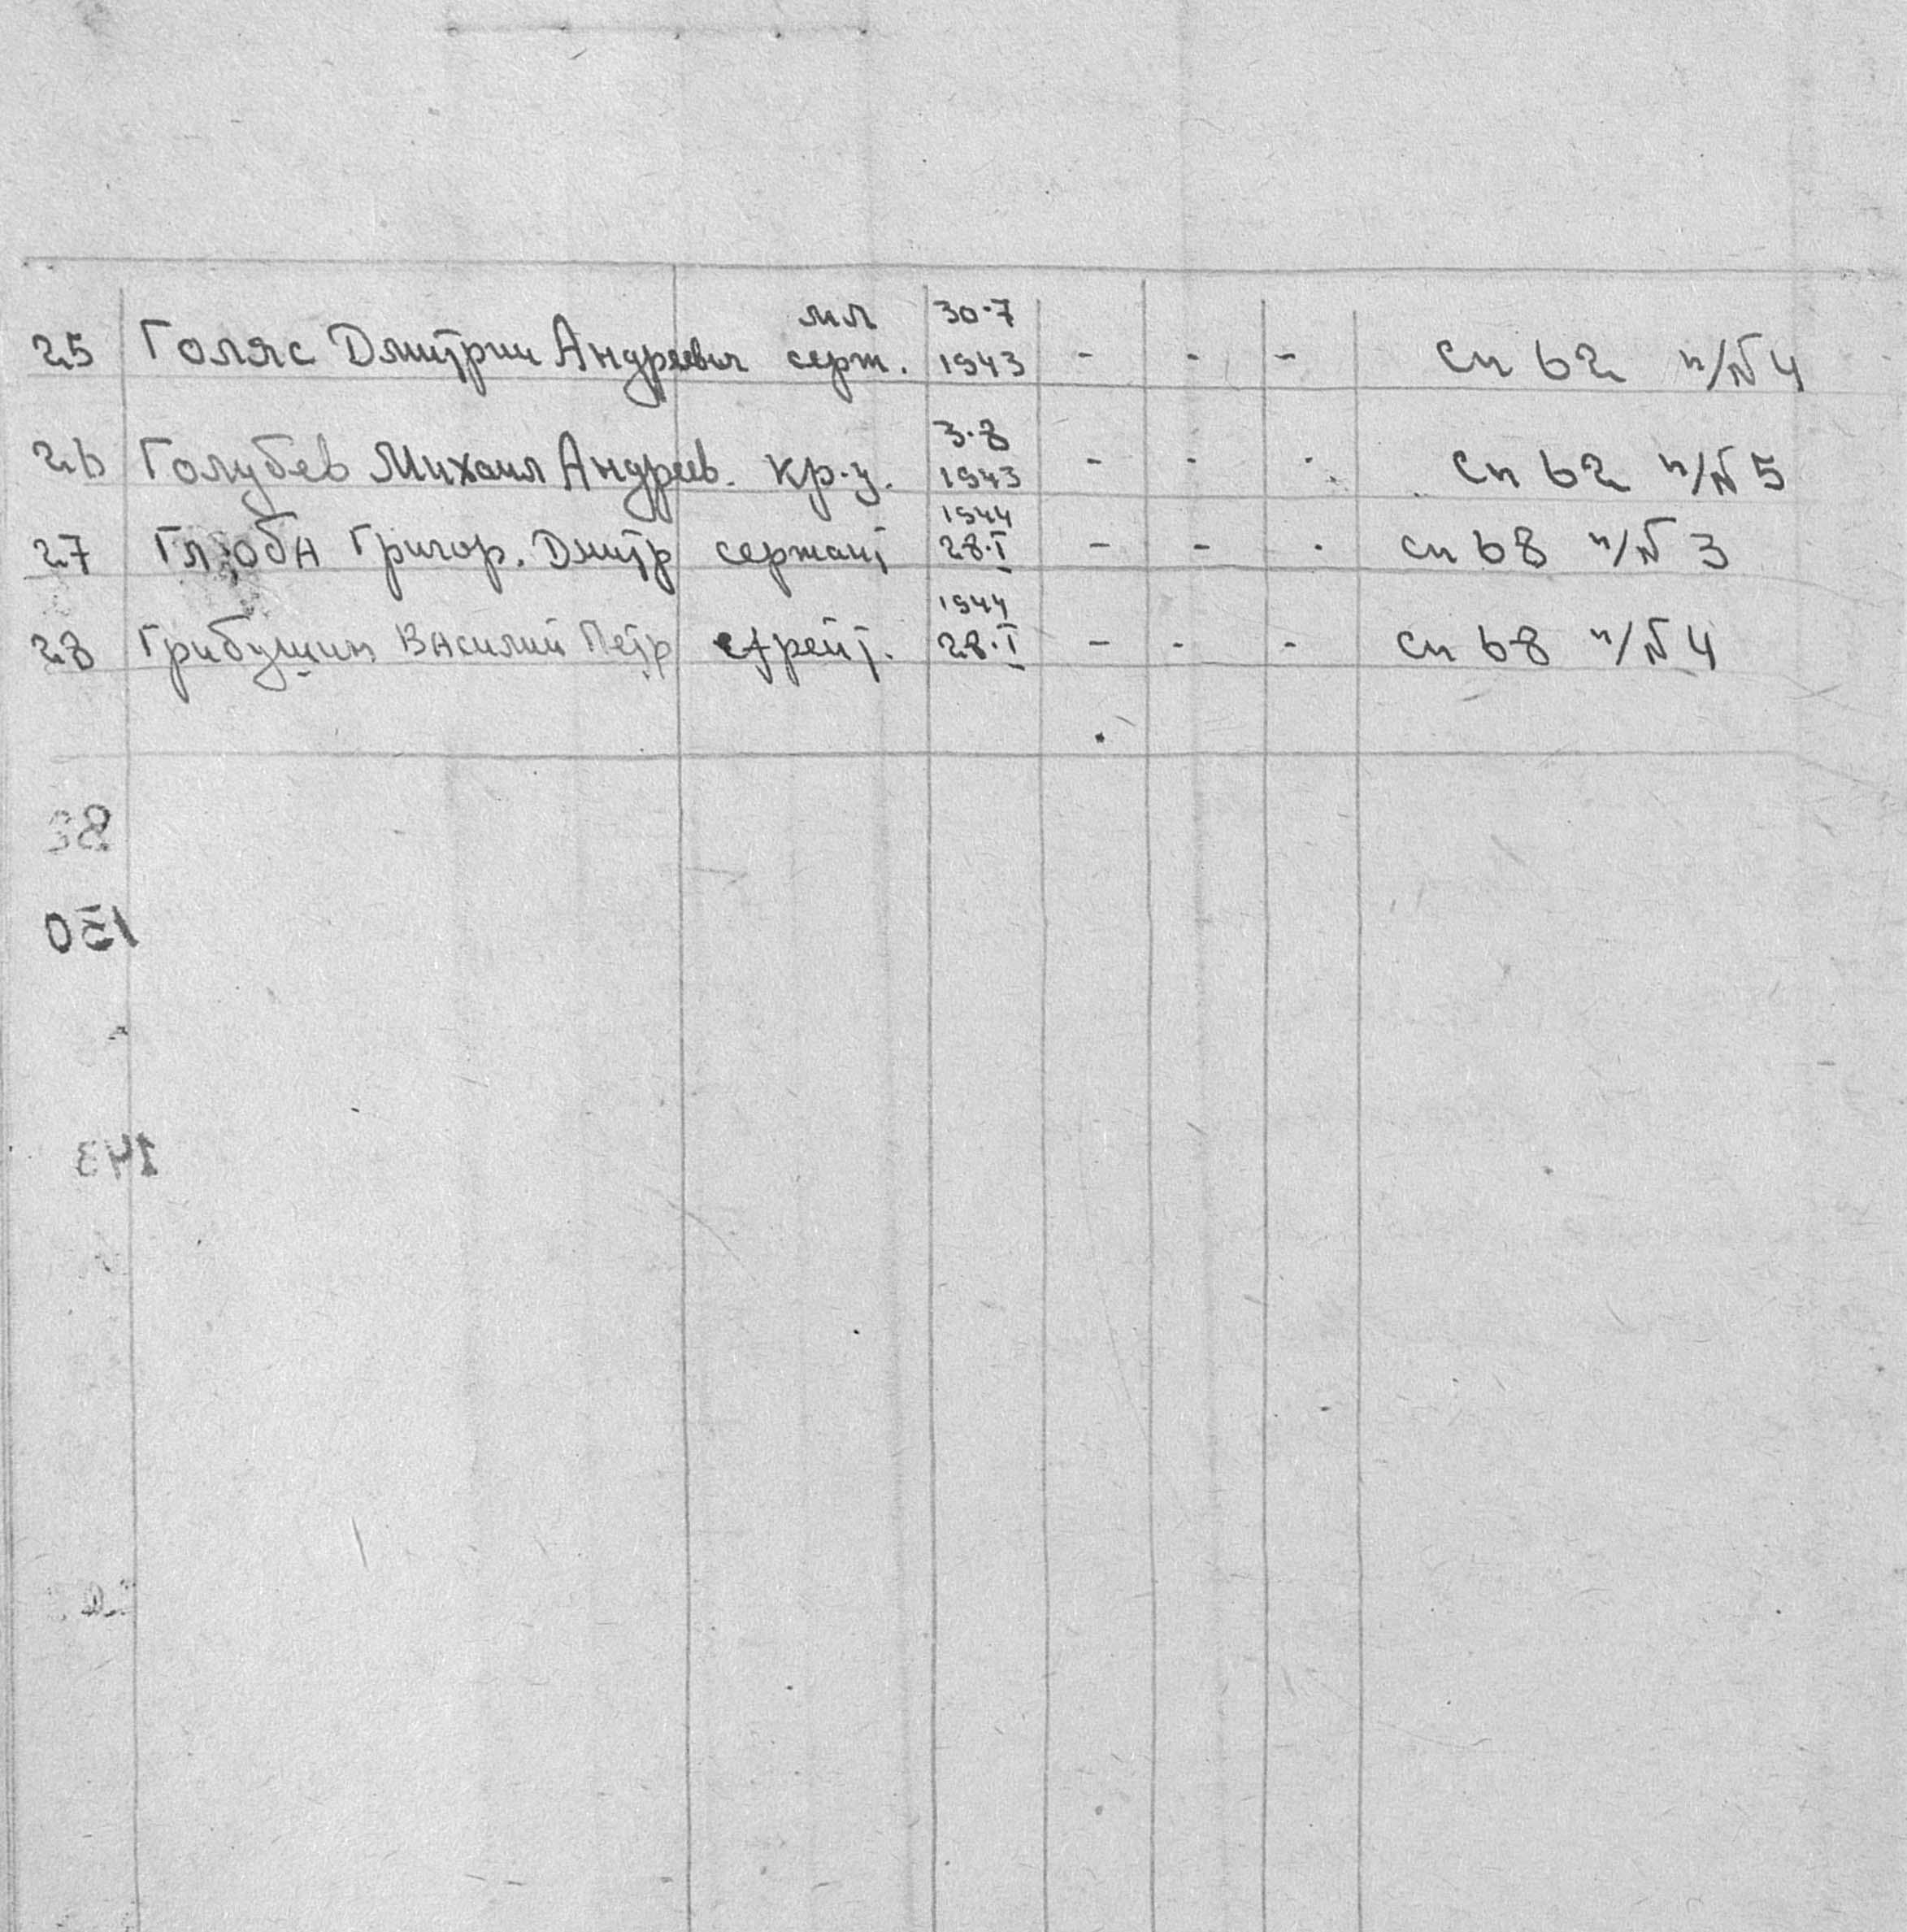 мл 30·7
25 Голяс Дмитрии Андреевич серж. 1943 - - - сп 62 п/№ 4
3·8
26 Голубев Михаил Андреев. кр-ц. 1943 - - - сп 62 п/№ 5
1944
27 Глоба Григор. Дмитр сержант 28·I - - - сп 68 п/№ 3
1944
28 Грибушин Василий Петр ефрейт. 28·I - - - сп 68 п/№ 4
143